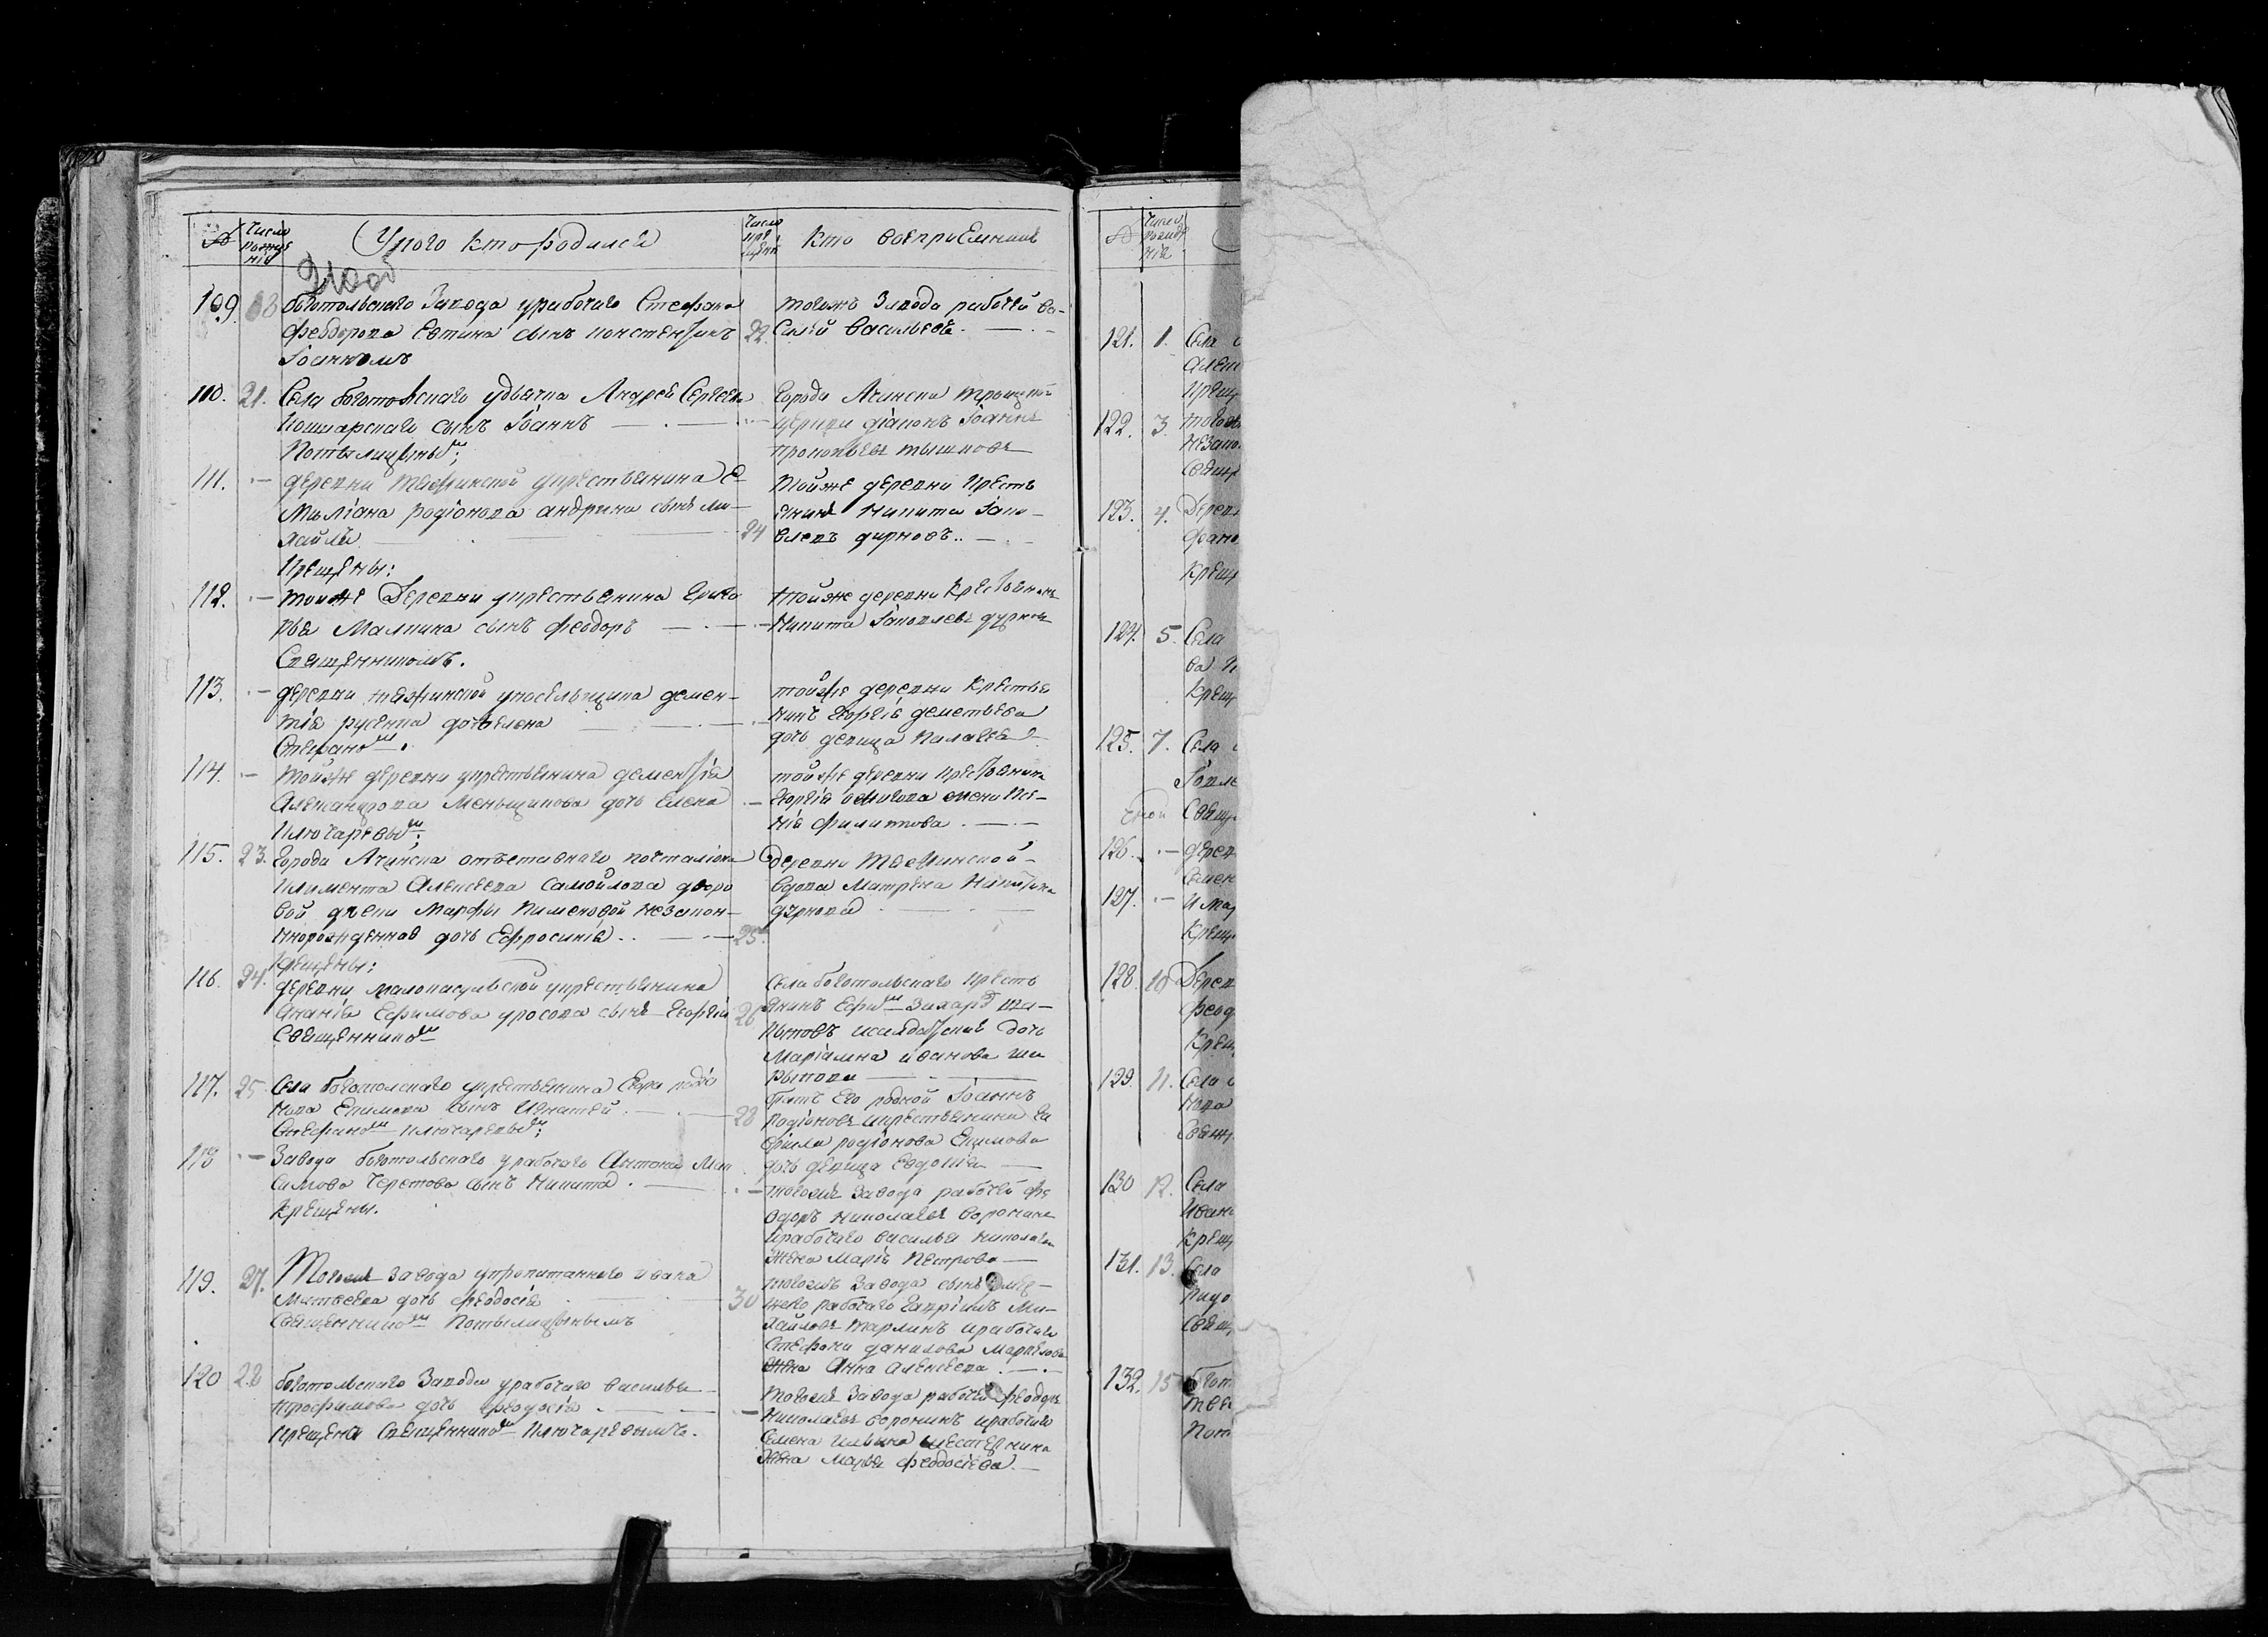 № Число рожде нія У кого кто родился Число кре щенія Кто восприемникъ
109. боготольскаго Завода у рабочаго Стефана
Феодорова Евтина сынъ Констентинъ
Іоанномъ
22. тогожъ Завода рабочей ва-
силій васильевъ.
110. 21. Села боготольскаго удьячка Андрей Сергеева
Кошарскаго сынъ Іоаннъ
Потылицыны^м;
Города Ачинска троицкой
церкви діаконъ Іоаннъ
прокопьевъ тышковъ
111. деревни тяжинской укрестьянина Е-
миліана родіонова андрина сынъ ми-
хаилъ
Крещены:
24 тойже деревни кресть
янинъ Никита Іаков-
влевъ дурновъ..
112. тойже Деревни укрестьянина Григо
рья Малкина сынъ феодоръ
Священникомъ.
тойже деревни Крестьянинъ
Никита Іаковлевъ дурновъ
113. деревни тяжинской упосельщика демен-
тія русенка дочь елена
Стефано^мъ.
тойже деревни Крестья
нинъ Георгія деметьева
дочь девица Палагея
114. тойже деревни укрестьянина дементія
Александрова Меньщикова дочь Елена
Ключаревы^м;
тойже деревни крестьянинъ
Георгія
нія филиткова.
115. 23. Города Ачинска отъставнаго почталіона
Климента Алексеева Самойлова дворо
вой девки Марфы Пименовой незакон-
норожденная дочь Ефросинія..
крещены:
25. деревни тяжинской
вдова Матрена Никитина
дурнова
116. 24. деревни малокосульской укрестьянина
Ананія Ефимова уросова сынъ Георгій
Священнико^м
26 Села боготольскаго кресть
янинъ Ефи^м Захаро^в ша-
рыповъ исолдатскія дочь
Маріамна иванова ша
рыпова
117. 25. Села боготольскаго укрестьянина Егора родіо
нова Екимова сынъ Игнатей.
Стефано^м ключаревы^м;
28 братъ его родной Іоаннъ
Родіоновъ икрестьянина Га
вріила родіонова Екимова
дочь девица Евдокія
118 Завода боготольскаго у рабочаго Антона Мак
симова Черетова сынъ Никита.
Крещены.
тогожъ Завода рабочей фе
одоръ николаевъ воронинъ
ирабочаго василья николаева
жена марія Петрова
119. 27. Тогожъ Завода упропитаннаго ивана
Матвеева дочь феодосія
Священнико^м Потылицынымъ
30 тогожъ Завода сынъ умер-
шего рабочаго Гавріилъ Ми-
хайловъ тарлинъ ирабочаго
Стефана данилова Маркелова
жена Анна Алексеева.
120 28 боготольскаго Завода у рабочаго василья
трофимова дочь феодосія.
крещена Священнико^м Ключаревымъ.
тогожъ Завода рабочей Феодоръ
Николаевъ воронинъ ирабочаго
Семена Ильина шестернина
жена марья феодосіева.
№ Число рожде нія
121. 1. Села
Крещ
122. 3. тогожъ
незако
Свящ
123. 4. Дерев
Крещ
124. 5. Села
ва
Крещ
125. 7. Села
Свящ
126. дерев
Семен
127. и Мар
Крещ
128. 10 Дерев
феод
Крещ
129. 11. Села
нова
Свящ
130 12. Села
Иван
Крещ
131. 13. Села
Свящ
132. 15 богот
Пот